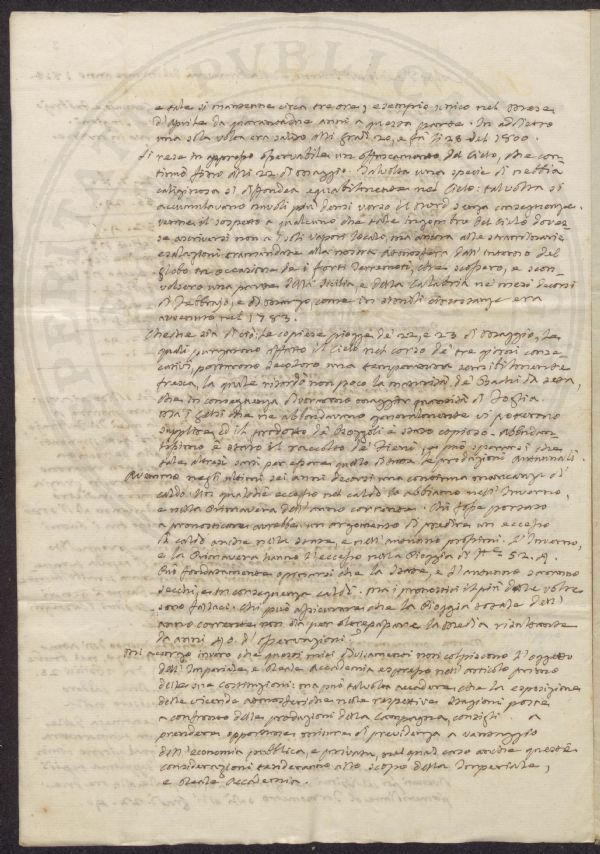 e tale si mantenne circa tre ore, esempio unico nel Mese
d'Aprile da quarantadue anni a questa parte. In addietro
una sola volta era salito alli gradi 20, e fu li 28 del 1800.
Si rese in appresso osservabile un offuscamento del Cielo, che con-
tinuò fino alli 22 di Maggio. Talvolta una specie di nebbia
caliginosa si diffondea equabilmente nel Cielo: talvolta si
accumulavano nuvoli più densi verso il Nord senza conseguenze.
Venne il sospetto a qualcuno che tale ingombro del Cielo doves-
se ascriversi non a soli vapori locali, ma ancora alle straordinarie
esalazioni tramandate alla nostra Atmosfera dall'interno del
globo in occasione de i forti Terremoti, che scossero, e scon-
volsero una parte della Sicilia, e della Calabria ne' mesi decorsi
di Febbrajo, e di Marzo, come in simili circostanze era
avvenuto nel 1783.
Checchè sia di ciò, le copiose piogge de' 22, e 23 di Maggio, le
quali purgarono affatto il Cielo nel corso de' tre giorni conse-
cutivi, portarono seco loro una temperatura sensibilmente
fresca, la quale ritardò non poco la maturità de' Bachi da seta,
che in conseguenza divorarono maggior quantità di Foglia
Ma i Gelsi che ne abbondavano generalmente vi poterono
supplire, ed il prodotto de' Bozzoli è stato copioso. Abbondan-
tissimo è stato il raccolto de' Fieni, e può sperarsi che
tale altresì sarà per essere quello di tutte le produzioni Autunnali.
Avemmo negli ultimi sei anni decorsi una continua mancanza di
caldo. Un qualche eccesso nel caldo lo abbiamo nell'Inverno,
e nella Primavera dell'anno corrente. Chi fosse portato
a pronosticare avrebbe un argomento di predire un eccesso
di caldo anche nella State, e nell'Autunno prossimi. L'Inverno,
e la Primavera hanno l'eccesso nella Pioggia di
Può fondatamente sperarsi che la State, e l'Autunno saranno
secchi, e in conseguenza caldi. Ma i pronostici il più delle volte
sono fallaci. Chi può assicurare che la Pioggia totale dell'
anno corrente non sia per oltrepassare la Media risultante
da anni 40. d'osservazioni?
Mi accorgo invero che questi miei divisamenti non colpiscono l'oggetto
dell'Imperiale, e Reale Accademia espresso nell'articolo primo
delle sue costituzioni: ma può talvolta accadere, che la esposizione
delle vicende atmosferiche nelle rispettive stagioni posta
a confronto delle produzioni della Campagna, consigli a
prendere opportune misure di previdenza a vantaggio
dell'economia pubblica, e privata, nel qual caso anche queste
considerazioni tenderanno allo scopo della Imperiale,
e Reale Accademia.